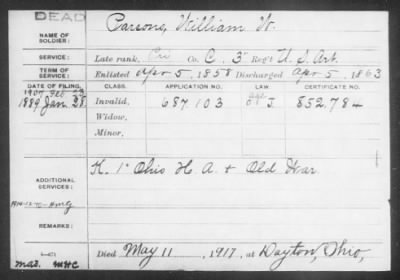 DEAD
NAME OF SOLDIER: Parsons, William W.
SERVICE: Late rank, Pri Co. C. 3" Reg't U.S. Art.
TERM OF SERVICE: Enlisted Apr 5, 1858 Discharged Apr 5, 1863
DATE OF FILING. CLASS. APPLICATION NO. LAW. CERTIFICATE NO.
1907 Feb 23
1889 Jan. 28 Invalid, 687103 J. 852,784
Widow,
Minor,
ADDITIONAL SERVICES: K. 1" Ohio H. A. + Old War.
REMARKS:
Died May 11, 1917, at Dayton, Ohio,